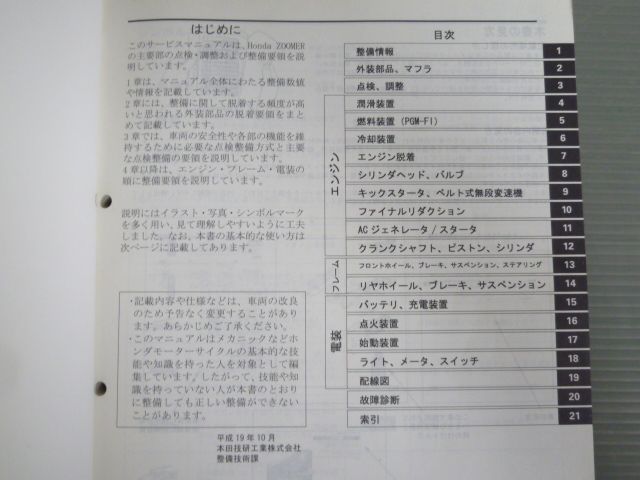 はじめに
このサービスマニュアルは、Honda ZOOMER
の主要部の点検・調整および整備要領を説
明しています。
1章は、マニュアル全体にわたる整備数値
や情報を記載しています。
2章には、整備に関して脱着する頻度が高
いと思われる外装部品の脱着要領をまと
めて記載しています。
3章では、車両の安全性や各部の機能を維
持するために必要な点検整備方式と主要
な点検整備の要領を説明しています。
4章以降は、エンジン・フレーム・電装の
順に整備要領を説明しています。
説明にはイラスト・写真・シンボルマーク
を多く用い、見て理解しやすいように工夫
しました。なお、本書の基本的な使い方は
次ページに記載してあります。
・記載内容や仕様などは、車両の改良
のため予告なく変更することがあり
ます。あらかじめご了承ください。
・このマニュアルはメカニックなどホ
ンダモーターサイクルの基本的な技
能や知識を持った人を対象として編
集しています。したがって、技能や知
識を持っていない人が本書のとおり
に整備しても正しい整備ができない
ことがあります。
平成19年10月
本田技研工業株式会社
整備技術課
目次
整備情報 1
外装部品、マフラ 2
点検、調整 3
エンジン
潤滑装置 4
燃料装置(PGM-FI) 5
冷却装置 6
エンジン脱着 7
シリンダヘッド、バルブ 8
キックスタータ、ベルト式無段変速機 9
ファイナルリダクション 10
ACジェネレータ/スタータ 11
クランクシャフト、ピストン、シリンダ 12
フレーム
フロントホイール、ブレーキ、サスペンション、ステアリング 13
リヤホイール、ブレーキ、サスペンション 14
電装
バッテリ、充電装置 15
点火装置 16
始動装置 17
ライト、メータ、スイッチ 18
配線図 19
故障診断 20
索引 21